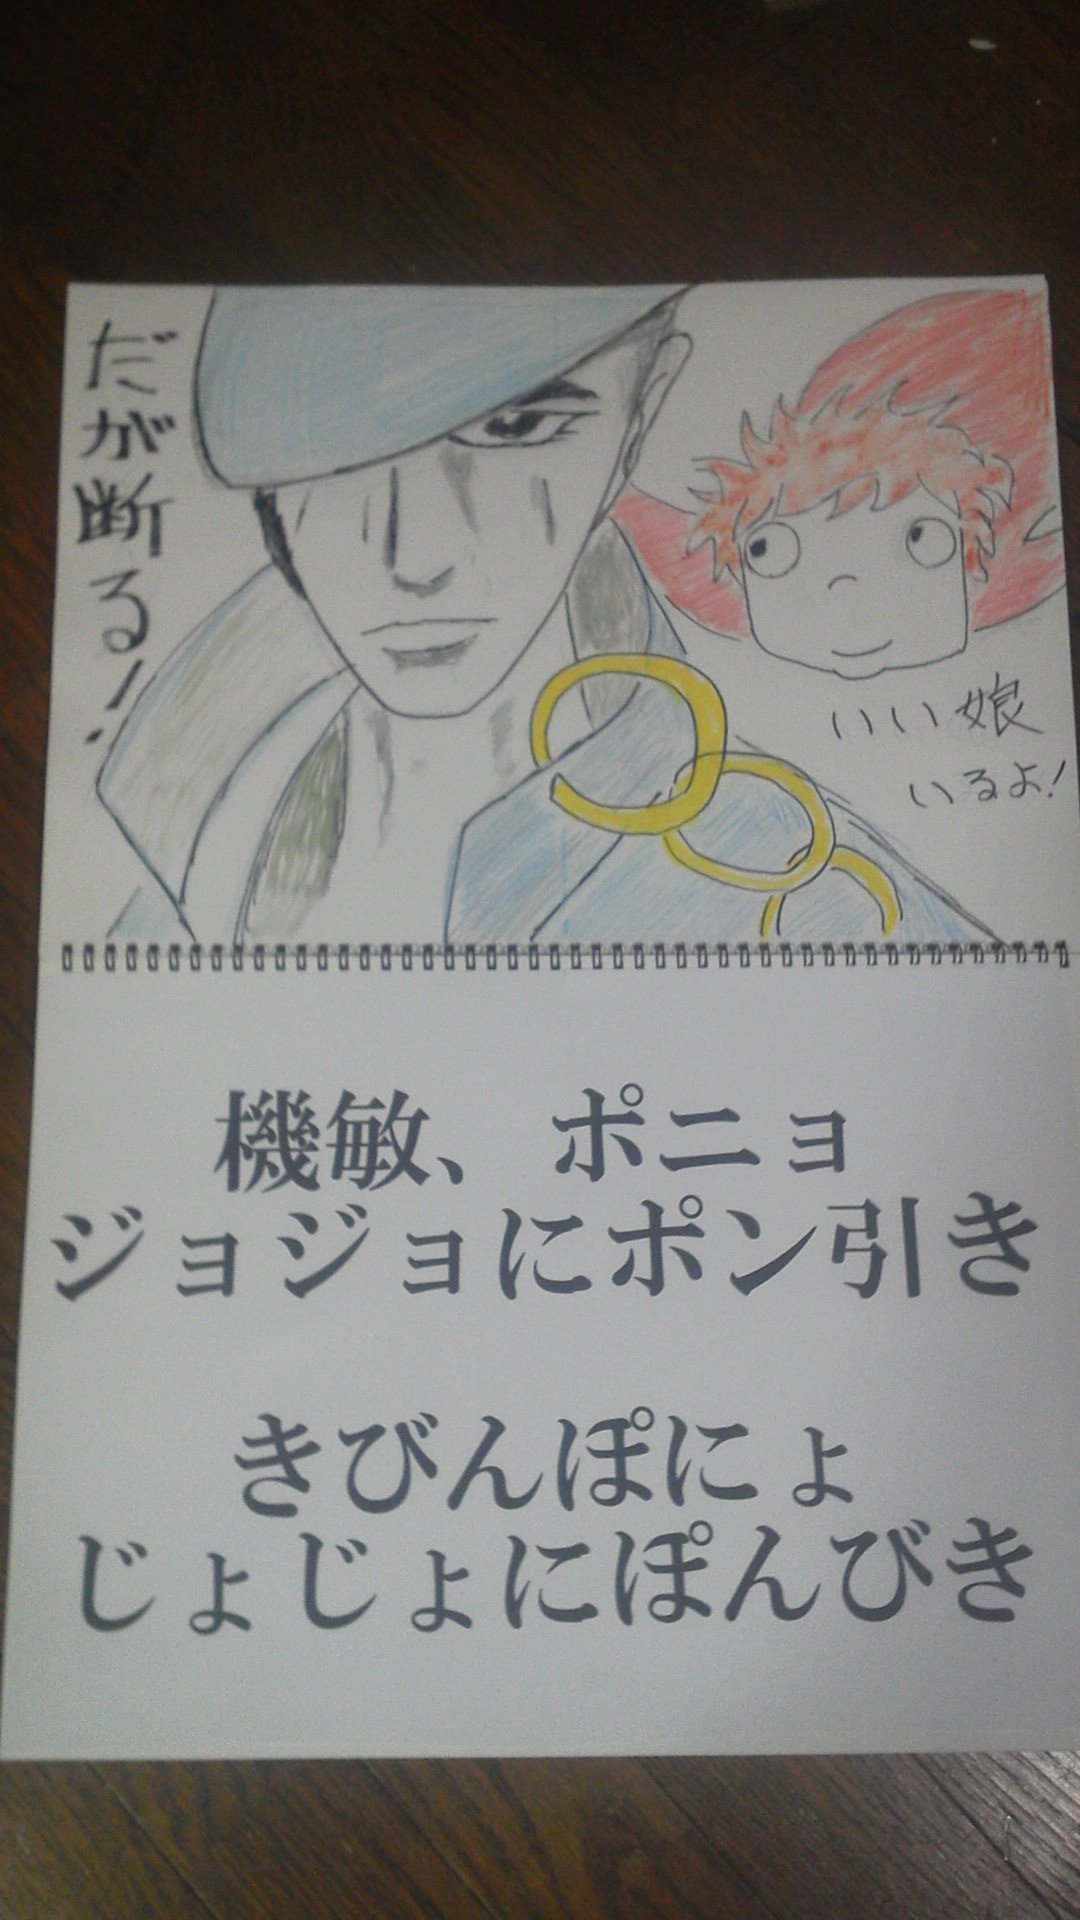 だが断る!
いい娘
いるよ!
機敏、ポニョ
ジョジョにポン引き
きびんぽにょ
じょじょにぽんびき